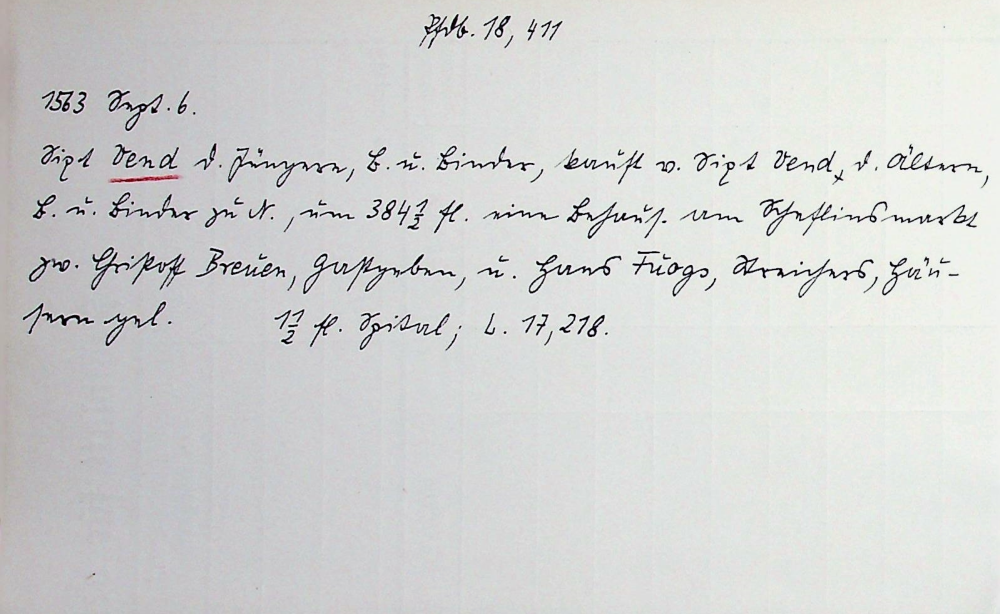 Pfdb. 18, 411
1563 Sept. 6.
Sixt Vend d. Jüngere, B. u. Binder, kauft v. Sixt Vend, d. Ältern,
B. u. Binder zu N., um 384 1/2 fl. eine Behaus. am Scheflinsmarkt
zw. Christoff Breuen, Gastgeben, u. Hans Fuogs, Streichers, Häu-
sern gel. 1 1/2 fl. Spital; L. 17, 218.